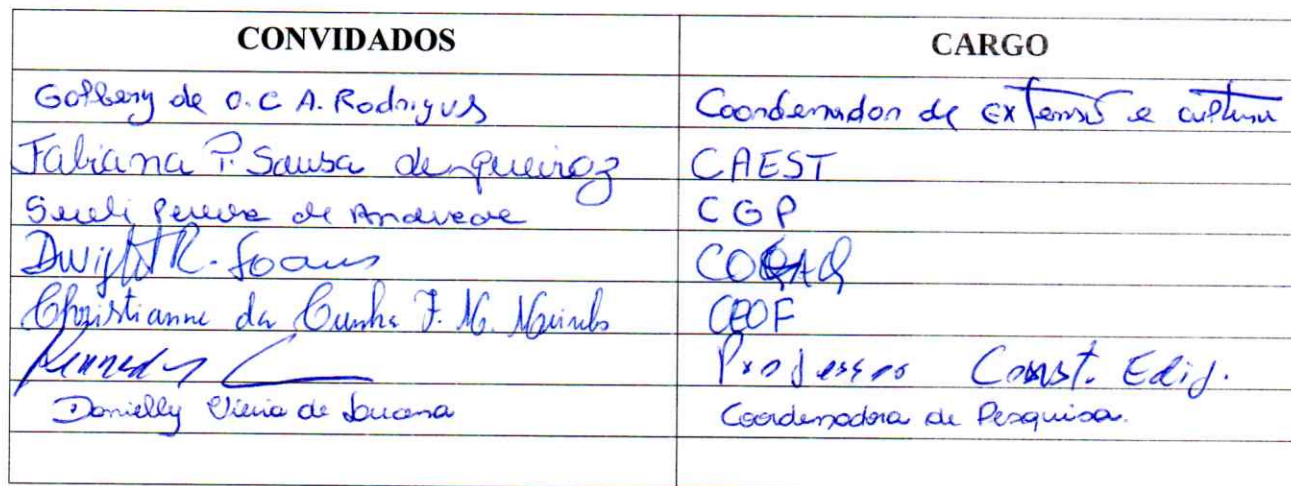 CONVIDADOS CARGO
Golbery de O. C A. Rodrigus Coordenador de extensão e cultura
Fabiana P. Sousa de Queiroz CAEST
Sueli Pereira de Andrade CGP
Dwight R. Soares
Christianne da Cunha F. M. CEOF
Kennedy Professor Const. Edif.
Danielly Vieira de Lucena Coordenadora de Pesquisa.